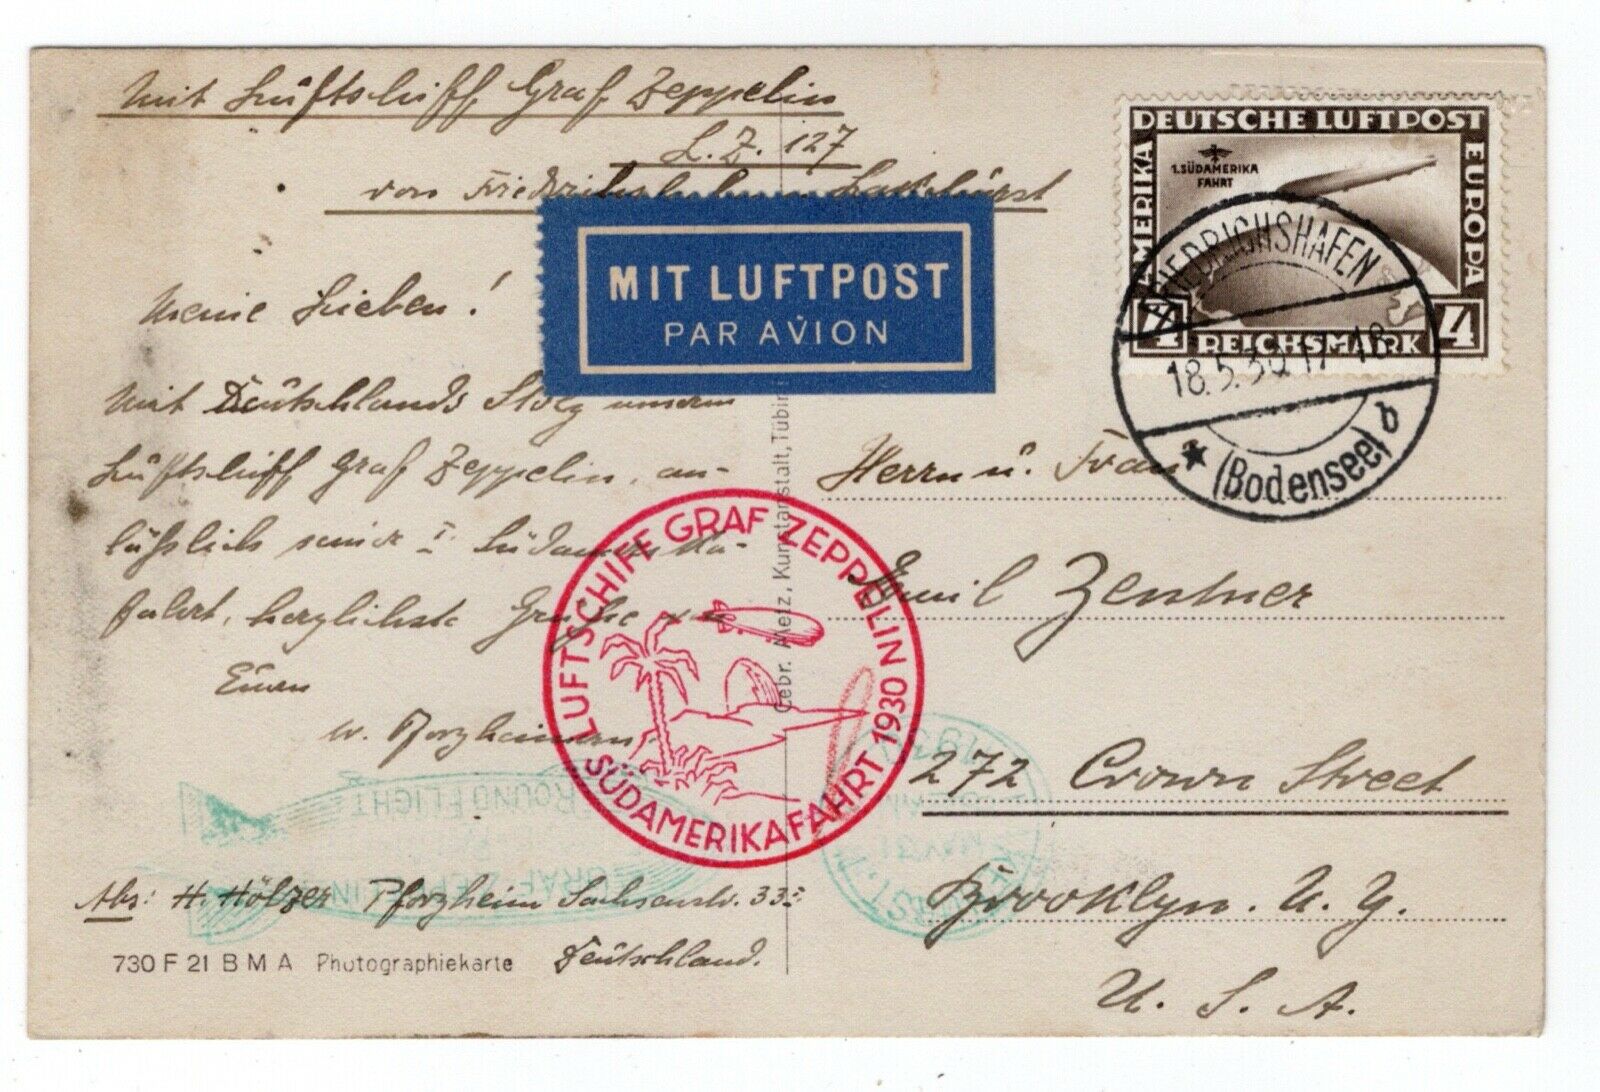 Mit Luftschiff Graf Zeppelin
L. Z. 127
von Friedrichshafen Lakehurst
MIT LUFTPOST
PAR AVION
DEUTSCHE LUFTPOST
AMERIKA
EUROPA
1. SÜDAMERIKA
FAHRT
4 REICHSMARK 4
FRIEDRICHSHAFEN
18.5.30.17-18
* (Bodensee) b
Meine Lieben!
Mit Deutschlands Stolz unserm
Luftschiff Graf Zeppelin, an-
läßlich seiner I Südamerika-
fahrt, herzlichste Grüße von
Euern
w. Pforzheimern.
LUFTSCHIFF GRAF ZEPPELIN 1930
SÜDAMERIKAFAHRT
Gebr. Metz, Kunstanstalt, Tübin
Herrn u. Frau
Emil Zentner
272 Crown Street
Brooklyn. N. Y.
U. S. A.
ROUND FLIGHT
GRAF ZEPPELIN
MAY 31
1930
Abs: H. Hölzer Pforzheim Sachsenstr. 33
Deutschland.
730 F 21 B M A Photographiekarte